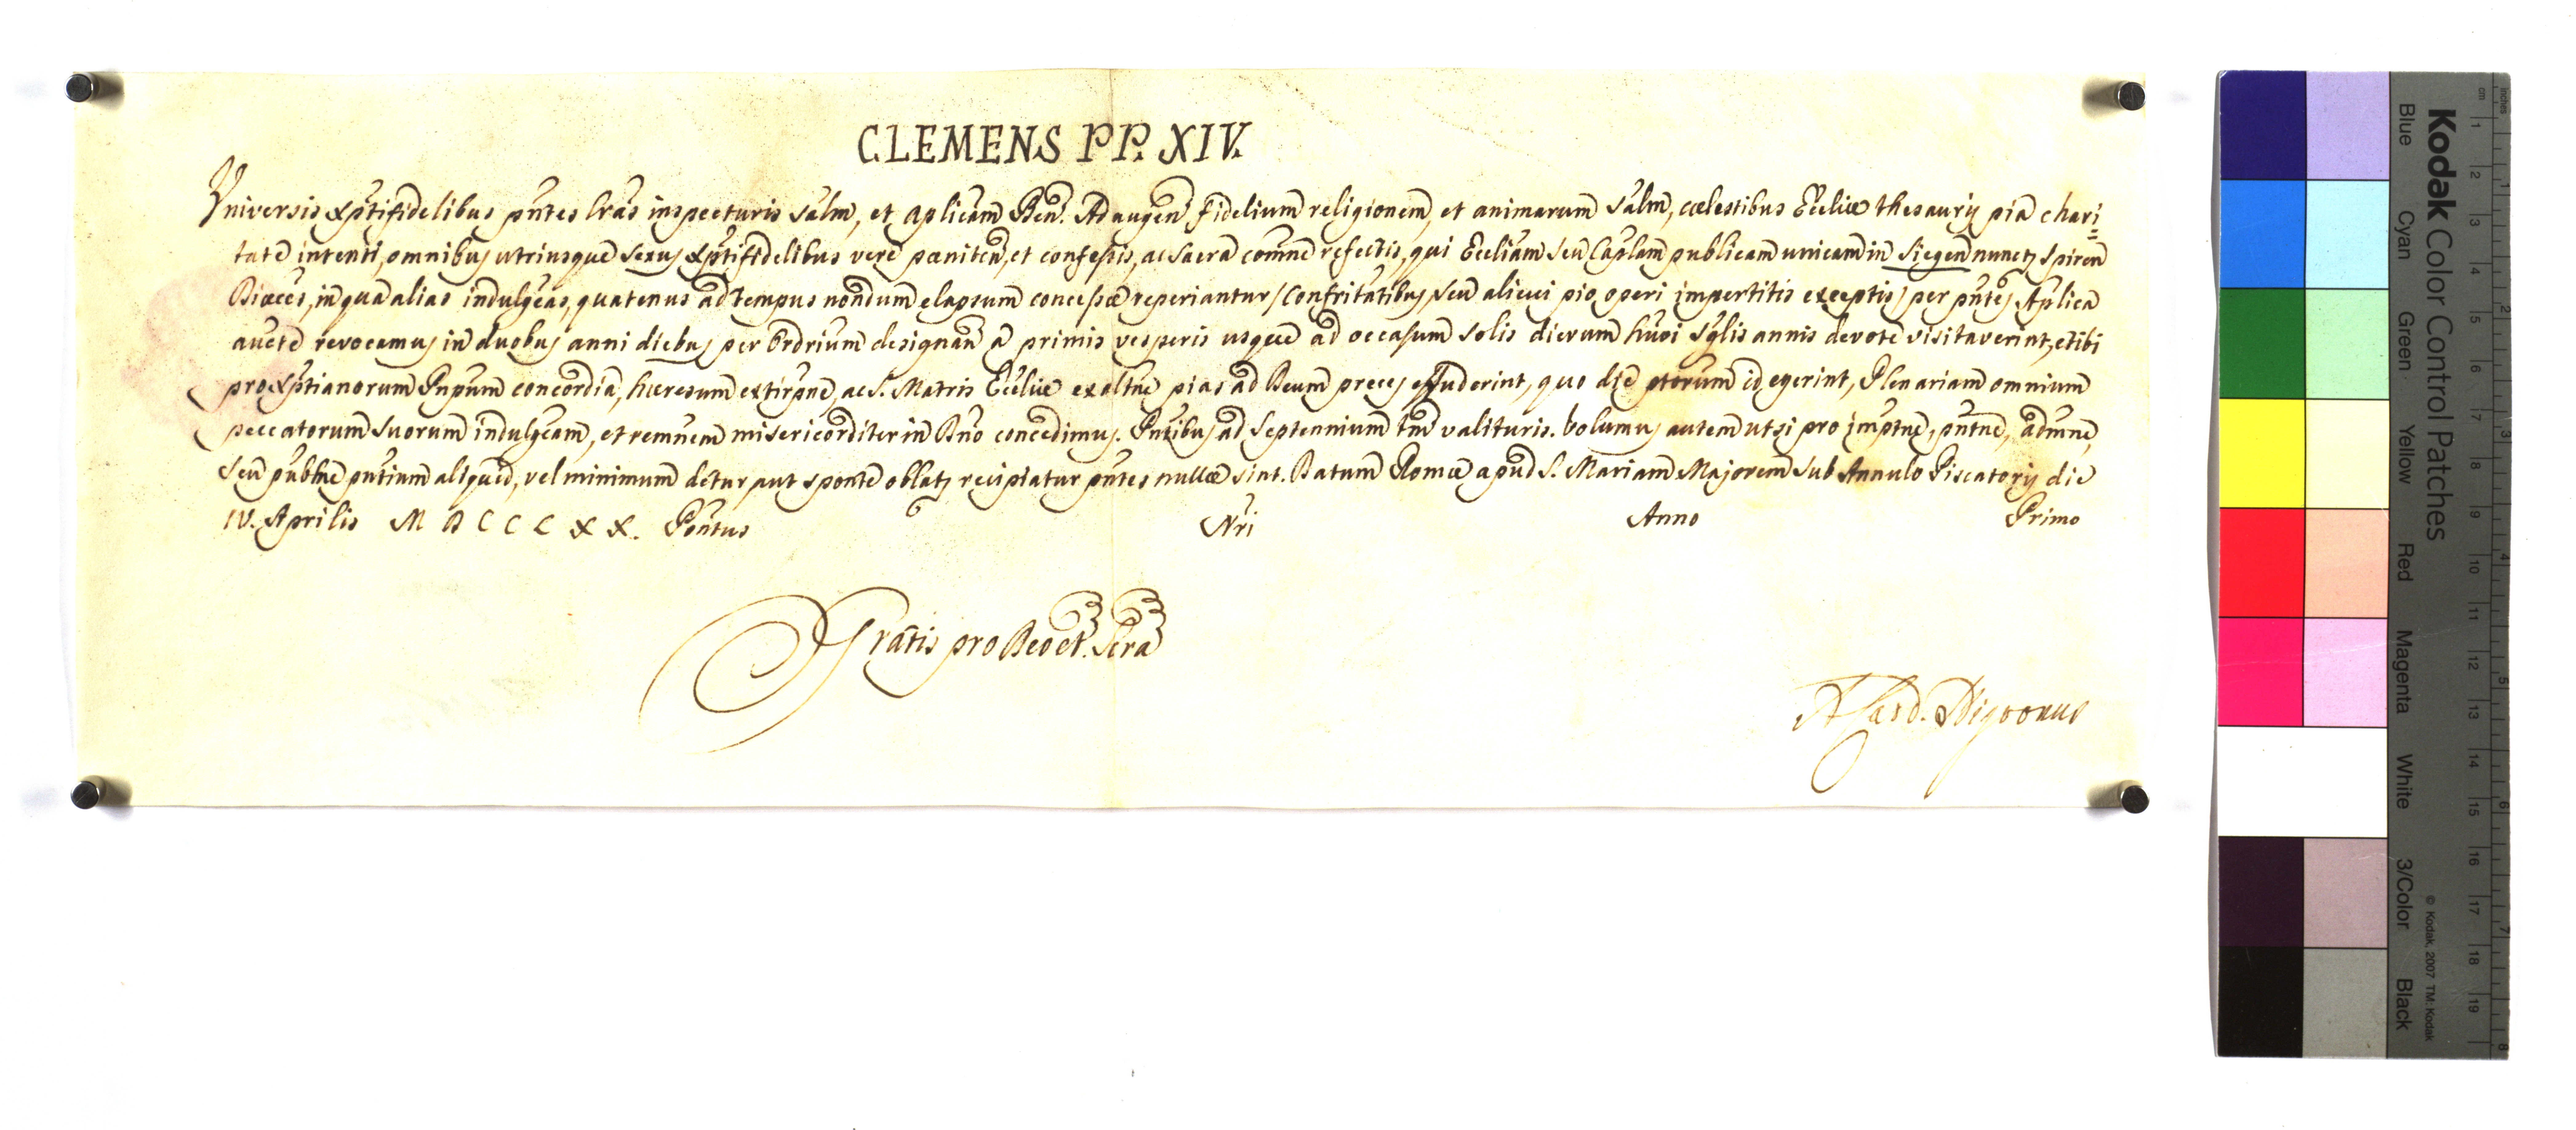 CLEMENS PP. XIV.
Universis Xptifidelibus pntes lras inspecturis Salm, et Aplicam Ben. Ad augen fidelium religionem, et animarum Salm, cœlestibus Ecclice thesauris pia chari=
tate intenti, omnibus utriusque sexus Xptifidelibus vere pœniten, et confessis, ac Sacra comne refectis, qui Eccliam seu Caplam publicam unicam in Siegen nuncp Spiren
Diœces, in qua alias indulgeas, quatenus ad tempus nondum elapsum concessæ reperiantur / Confritatibus seu alicui pio operi impertitis exceptis / per pntes Aplica
aucte revocamus in duobus anni diebus per Ordrium designan a primis vesperis usque ad occasum solis dierum huoi Sglis annis devote visitaverint, et ibi
pro Xptianorum Pnpum concordia, hæresum extirpne, ac S. Matris Eccliæ exaltne pias ad Deum preces effuderint, quo die ptorum id egerint, Plenariam omnium
peccatorum suorum indulgeam, et remnem misericorditer in Dno concedimus. Pntibus ad Septennium tm valituris. Volumus autem ut si pro impetne, pntne, admne,
seu publne pntium aliquid, vel minimum detur aut sponte oblatz recipiatur pntes nullæ sint. Datum Romæ apud S. Mariam Majorem sub Annulo Piscatoris die
IV. Aprilis M D C C L X X. Pontus Nri Anno Primo
Gratis pro Deo et Scra
A Card. Nigronus